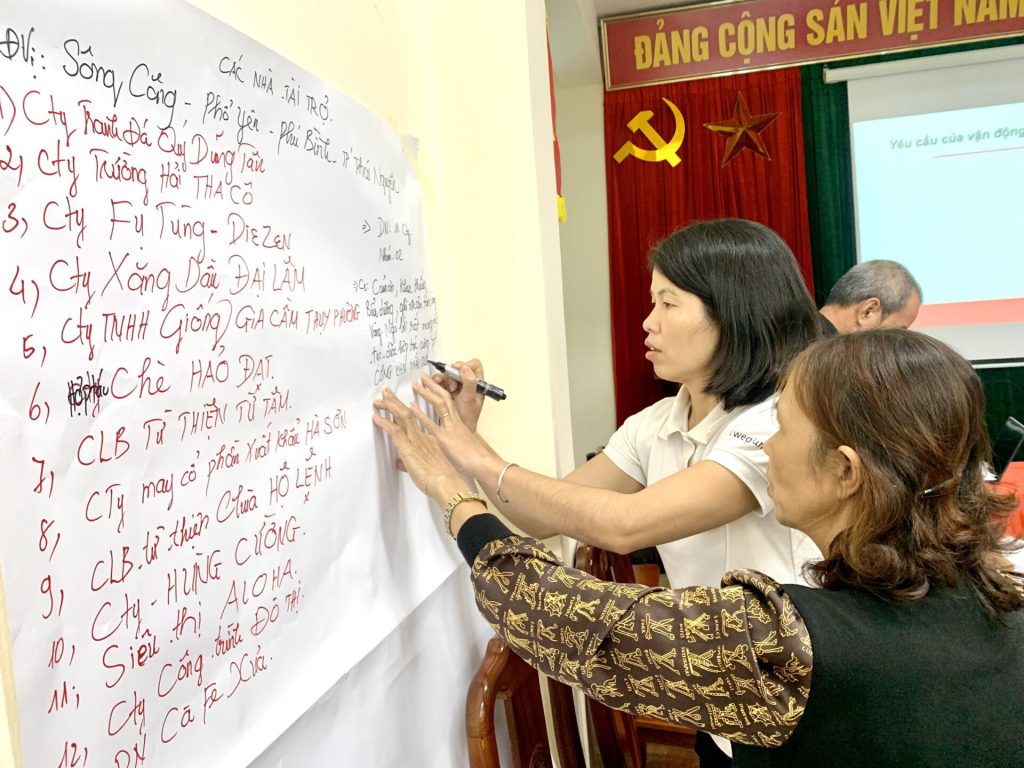 ĐẢNG CỘNG SẢN VIỆT NAM
Yêu cầu của vận động
CÁC NHÀ TÀI TRỢ.
ĐVị: Sông Công - Phổ Yên - Phú Bình
1) Cty Tranh Đá Quý Dũng Tân
2, Cty Trường Hải THACÔ
3, Cty Fụ Tùng - DIEZEN
4) Cty Xăng Dầu ĐẠI LÂM
5, Cty TNHH Giống GIA CẦM THỤY PHƯƠNG
6, Chè HẢO ĐẠT.
7, CLB TỪ THIỆN TỪ TÂM.
8, CTy may cổ phần Xuất khẩu HÀ SƠN
9, CLB từ thiện Chùa HỘ LỆNH
10, Cty - HÙNG CƯỜNG.
11, Siêu thị ALOHA.
12, Cty Công trình ĐÔ THỊ.
DN Cà Fe Xưa.
=> DN: 11 Cty
Nhóm: 02